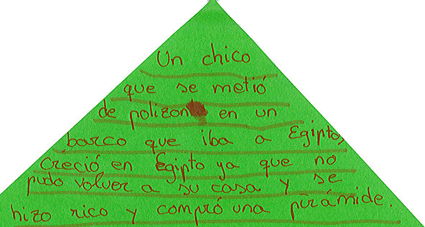 Un chico
que se metió
de polizon en un
barco que iba a Egipto,
creció en Egipto ya que no
pudo volver a su casa y se
hizo rico y compró una pirámide.